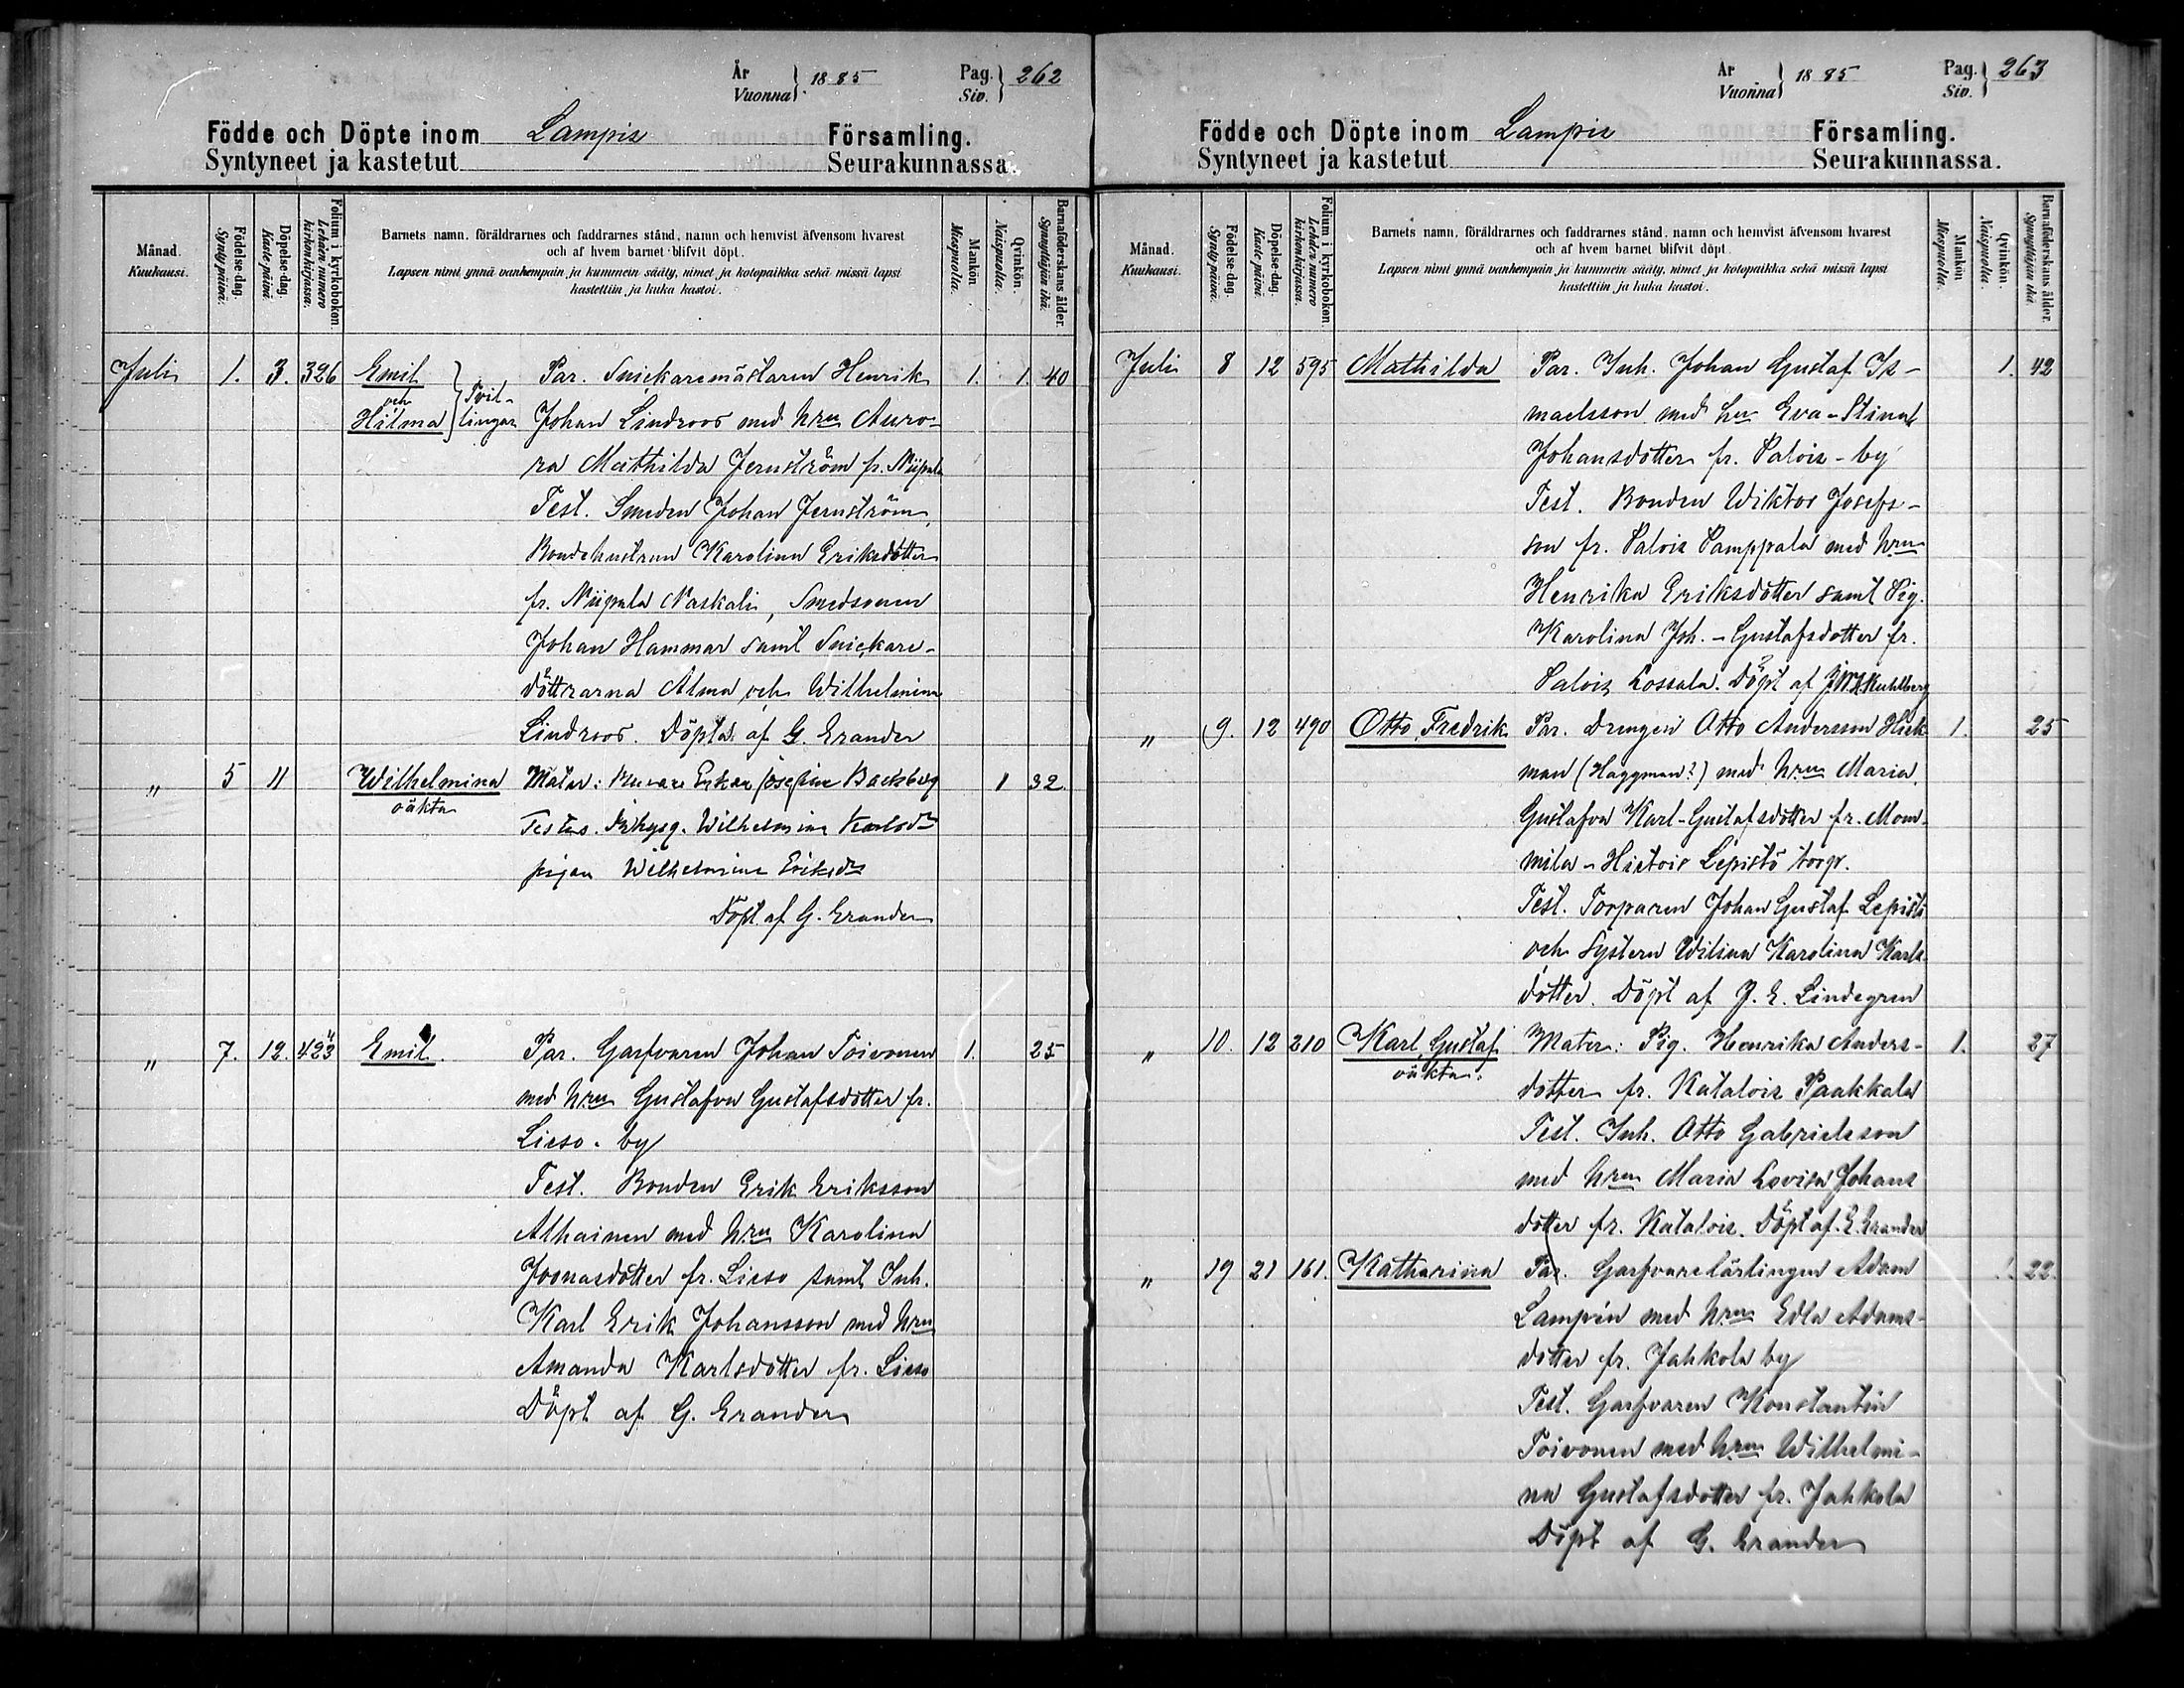 År
Vuonna } 1885
Pag.
Siv. } 262
Födde och Döpte inom Lampis Församling.
Syntyneet ja kastetut Seurakunnassa.
Månad.
Kuukausi.
Födelse-dag.
Synty päivä.
Döpelse-dag.
Kaste päivä.
Folium i kyrkoboken.
Lehden numero
kirkonkirjassa.
Barnets namn, föräldrarnes och faddrarnes stånd, namn och hemvist äfvensom hvarest
och af hvem barnet blifvit döpt.
Lapsen nimi ynnä vanhempain ja kummein sääty, nimet ja kotopaikka sekä missä lapsi
kastettiin ja kuka kastoi.
Mankön
Miespuolia.
Qvinkön.
Naispuolia.
Barnaföderskans ålder.
Synnyttäjän ikä.
Juli 1. 3. 326 Emil och Hilma } Tvillingar Par. Snickaremästaren Henrik 1. 1. 40
Johan Lindroos med hru Auro-
ra Mathilda Jernström fr. Niipala
Test. Smeden Johan Jernström,
Bondehustrun Karolina Eriksdotter
fr. Niipala Naskali, Smedsonen
Johan Hammar samt Snickare-
döttrarna Alma och Wilhelmina
Lindroos. Döpta af G. Erander
" 5 11 Wilhelmina Mater: Josefina Backberg 1 32
oäkta Testes. Wilhelmina Karlsdr
pigan Wilhelmina Eriksdr
Döpt af G. Erander
" 7. 12. 423 Emil. Par. Garfvaren Johan Toivonen 1. 25
med hru Gustafva Gustafsdotter fr.
Lieso-by
Test. Bonden Erik Eriksson
Alhainen med hru Karolina
Joonasdotter fr. Lieso samt Inh.
Karl Erik Johansson med hru
Amanda Karlsdotter fr. Lieso
Döpt af G. Erander
År
Vuonna } 1885
Pag.
Siv. } 263
Födde och Döpte inom Lampis Församling.
Syntyneet ja kastetut Seurakunnassa.
Månad.
Kuukausi.
Födelse-dag.
Synty päivä.
Döpelse-dag.
Kaste päivä.
Folium i kyrkoboken.
Lehden numero
kirkonkirjassa.
Barnets namn, föräldrarnes och faddrarnes stånd, namn och hemvist äfvensom hvarest
och af hvem barnet blifvit döpt.
Lapsen nimi ynnä vanhempain ja kummein sääty, nimet ja kotopaikka sekä missä lapsi
kastettiin ja kuka kastoi.
Mankön
Miespuolia.
Qvinkön.
Naispuolia.
Barnaföderskans ålder.
Synnyttäjän ikä.
Juli 8 12 595 Mathilda Par. Inh. Johan Gustaf Is- 1. 42
maelsson med hu Eva-Stina
Johansdotter fr. Palois-by
Test. Bonden Wiktor Josefs-
son fr. Palois Pamppala med hru
Henrika Eriksdotter samt Pig.
Karolina Joh.-Gustafsdotter fr.
Palois Lossala. Döpt af
" 9. 12 490 Otto Fredrik Par. Drengen Otto Andersson Hiek- 1. 25
man (Haggman?) med hru Maria
Gustafva Karl-Gustafsdotter fr. Mom-
mila-Hietois Lepistö torp.
Test. Torparen Johan Gustaf Lepistö
och Systern Wilina Karolina Karls-
dotter. Döpt af J. E. Lindegren
" 10. 12 210 Karl Gustaf Mater: Pig. Henrika Anders- 1. 27
oäkta. dotter fr. Katalois Paakkala
Test. Inh. Otto Gabrielsson
med hru Maria Lovisa Johans
dotter fr. Katalois. Döpt af G. Erander
" 19 21 161. Katharina Par. Garfvarelärlingen Adam 1. 22.
Lampén med hru Edla Adams-
dotter fr. Jahkola by
Test. Garfvaren Konstantin
Toivonen med hru Wilhelmi-
na Gustafsdotter fr. Jahkola
Döpt af G. Erander